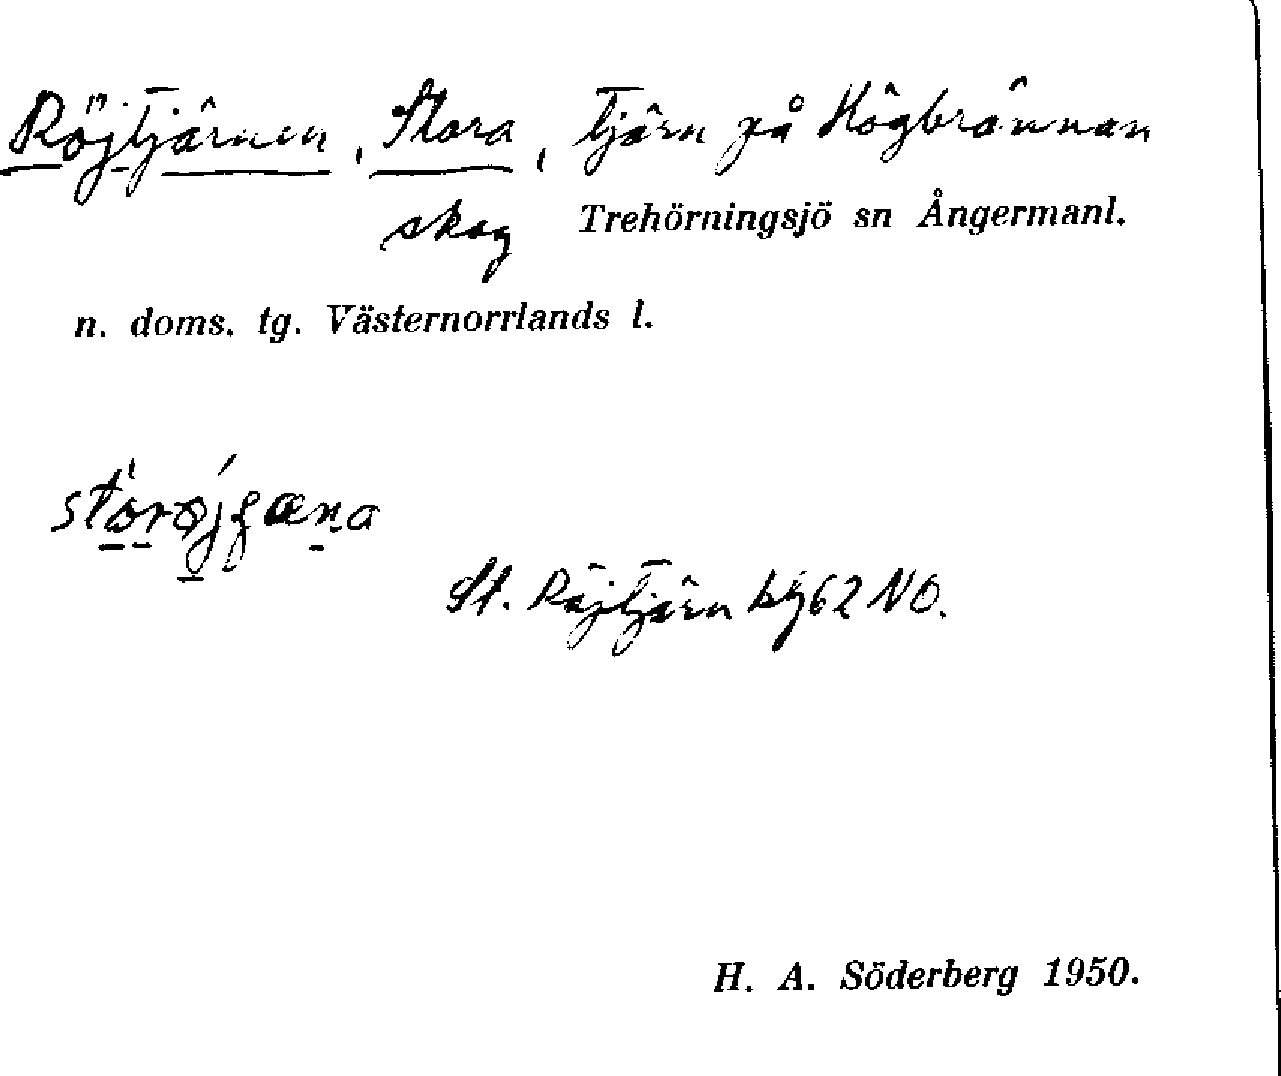 Röjtjärnen, Stora, tjärn på Högbrännan
skog Trehörningsjö sn Ångermanl.
n. doms. tg. Västernorrlands l.
St. Röjtjärn bl 62 NO.
H. A. Söderberg 1950.